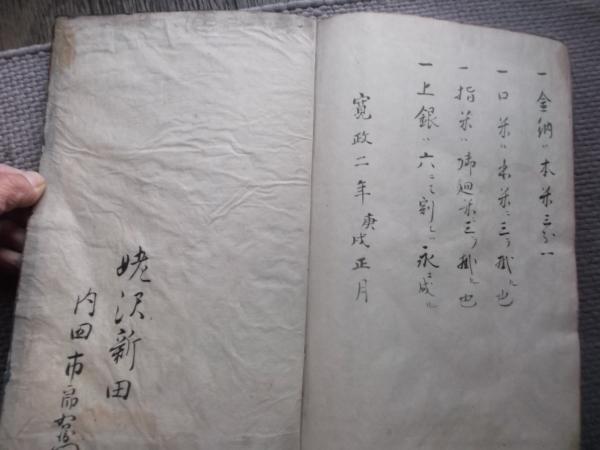 一金納ハ本米三分一
一口米ハ本米ニ三ヲ掛ル也
一指米ハ御廻米ニ三ヲ掛ル也
一上銀ハ六ニて割ハ永ニ成ル
寛政二年庚戌正月
姥沢新田
内田市郎右衛門